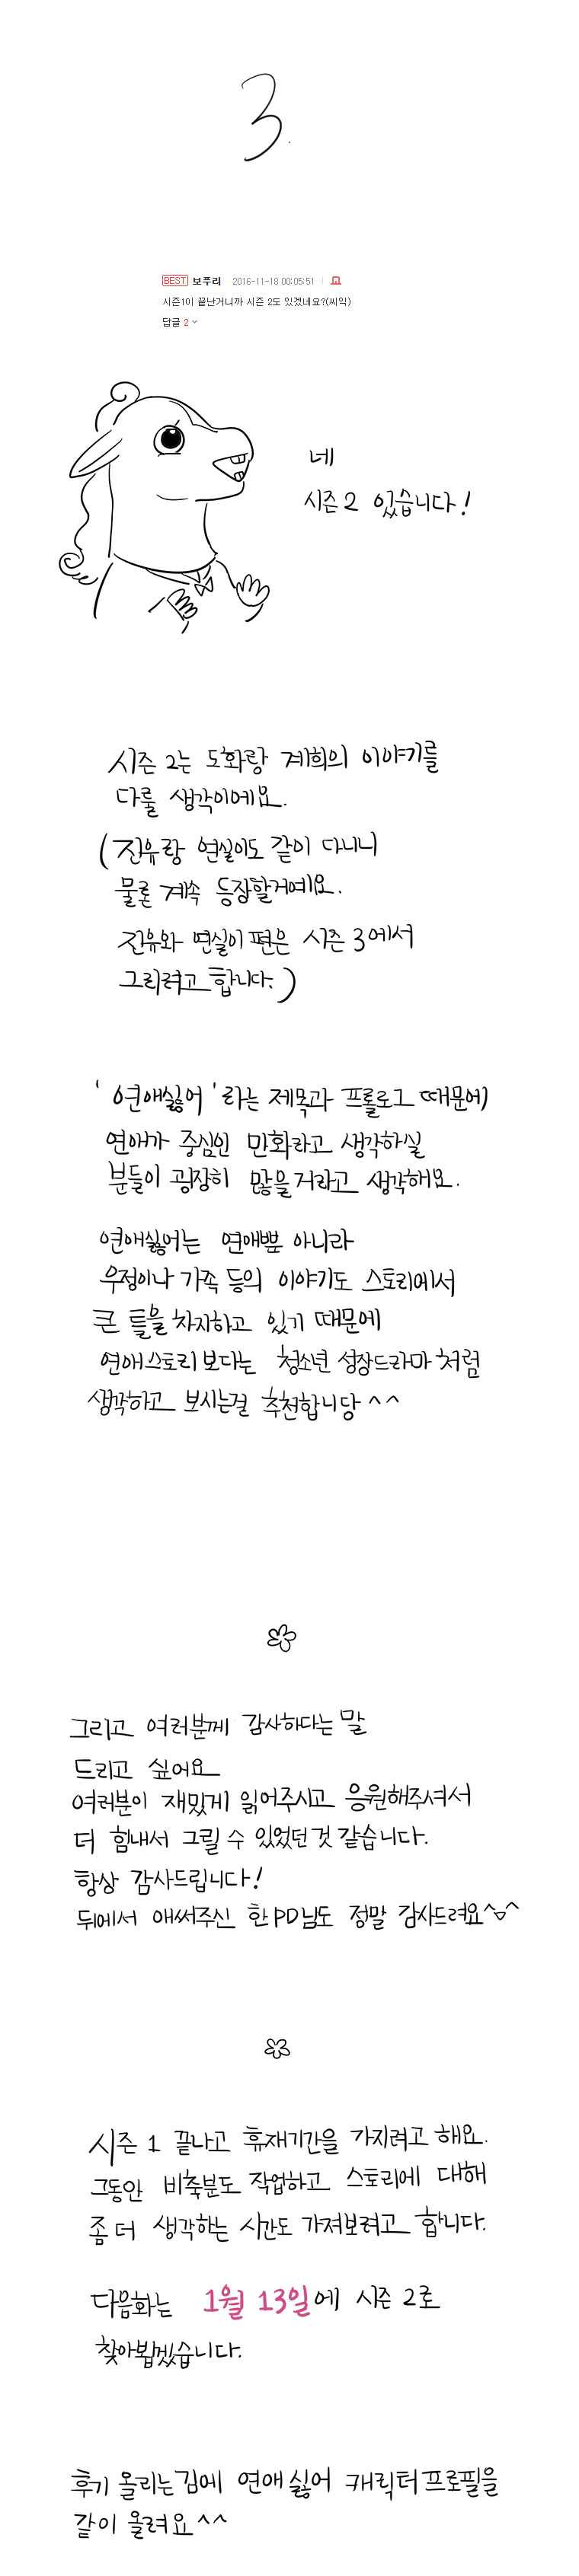 3.
BEST 보푸리 2016-11-18 00:05:51
시즌1이 끝난거니까 시즌 2도 있겠네요?(씨익)
답글 2
네
시즌 2 있습니다!
시즌 2는 도화랑 계희의 이야기를
다룰 생각이에요.
(진유랑 연실이도 같이 다니니
물론 계속 등장할거예요.
진유와 연실이 편은 시즌 3에서
그리려고 합니다.)
'연애싫어'라는 제목과 프롤로그 때문에
연애가 중심인 만화라고 생각하실
분들이 굉장히 많을거라고 생각해요.
연애싫어는 연애뿐 아니라
우정이나 가족 등의 이야기도 스토리에서
큰 틀을 차지하고 있기 때문에
연애스토리 보다는 청소년 성장드라마 처럼
생각하고 보시는걸 추천합니당 ^^
그리고 여러분께 감사하다는 말
드리고 싶어요
여러분이 재밌게 읽어주시고 응원해주셔서
더 힘내서 그릴 수 있었던 것 같습니다.
항상 감사드립니다!
뒤에서 애써주신 한PD님도 정말 감사드려요^^
시즌 1 끝나고 휴재기간을 가지려고 해요.
그동안 비축분도 작업하고 스토리에 대해
좀 더 생각하는 시간도 가져보려고 합니다.
다음화는 1월 13일에 시즌 2로
찾아뵙겠습니다.
후기 올리는김에 연애싫어 캐릭터프로필을
같이 올려요^^